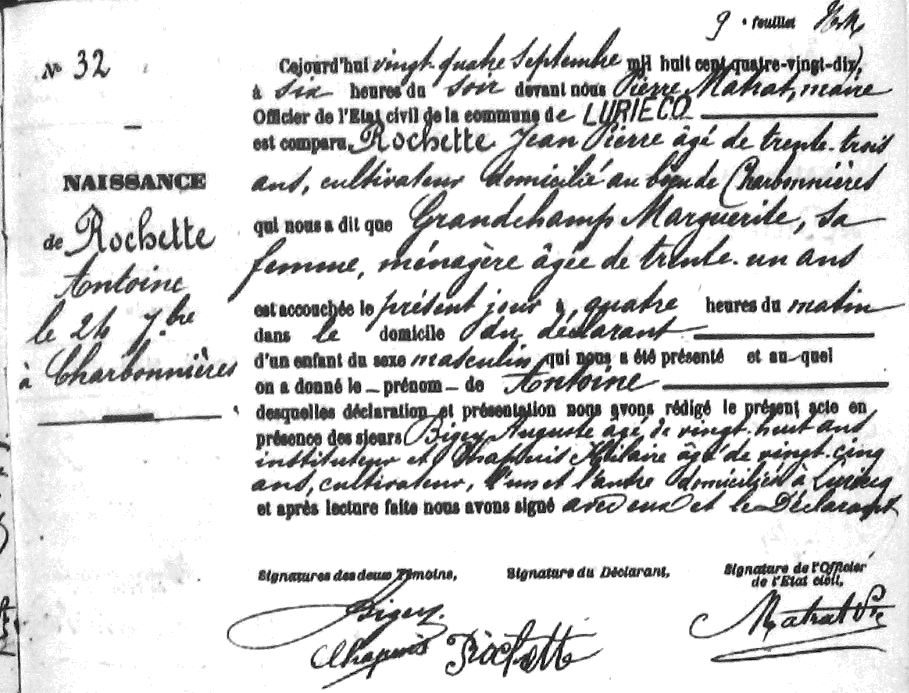 9 . feuillet
N° 32
NAISSANCE
de Rochette
Antoine
le 24 7bre
à Charbonnières
Cejourd'hui vingt-quatre septembre mil huit cent quatre-vingt-dix,
à six heures du soir devant nous Pierre Matrat, maire
Officier de l'Etat civil de la commune de LURIECQ
est comparu Rochette Jean Pierre âgé de trente-trois
ans, cultivateur domicilié au de Charbonnières
qui nous a dit que Grandchamp Marguerite, sa
femme, ménagère âgée de trente-un ans
est accouchée le présent jour à quatre heures du matin
dans le domicile du déclarant
d'un enfant du sexe masculin qui nous a été présenté et au-quel
on a donné le prénom de Antoine
desquelles déclaration et présentation nous avons rédigé le présent acte en
présence des sieurs Bigey Auguste âgé de vingt-huit ans
instituteur et Chapuis Hilaire âgé de vingt-cinq
ans, cultivateur, l'un et l'autre domiciliés à Luriecq
et après lecture faite nous avons signé avec eux et le Déclarant
Signatures des deux Témoins,
Signature du Déclarant,
Signature de l'Officier
de l'Etat civil,
Bigey
Chapuis
Rochette
Matrat Pre